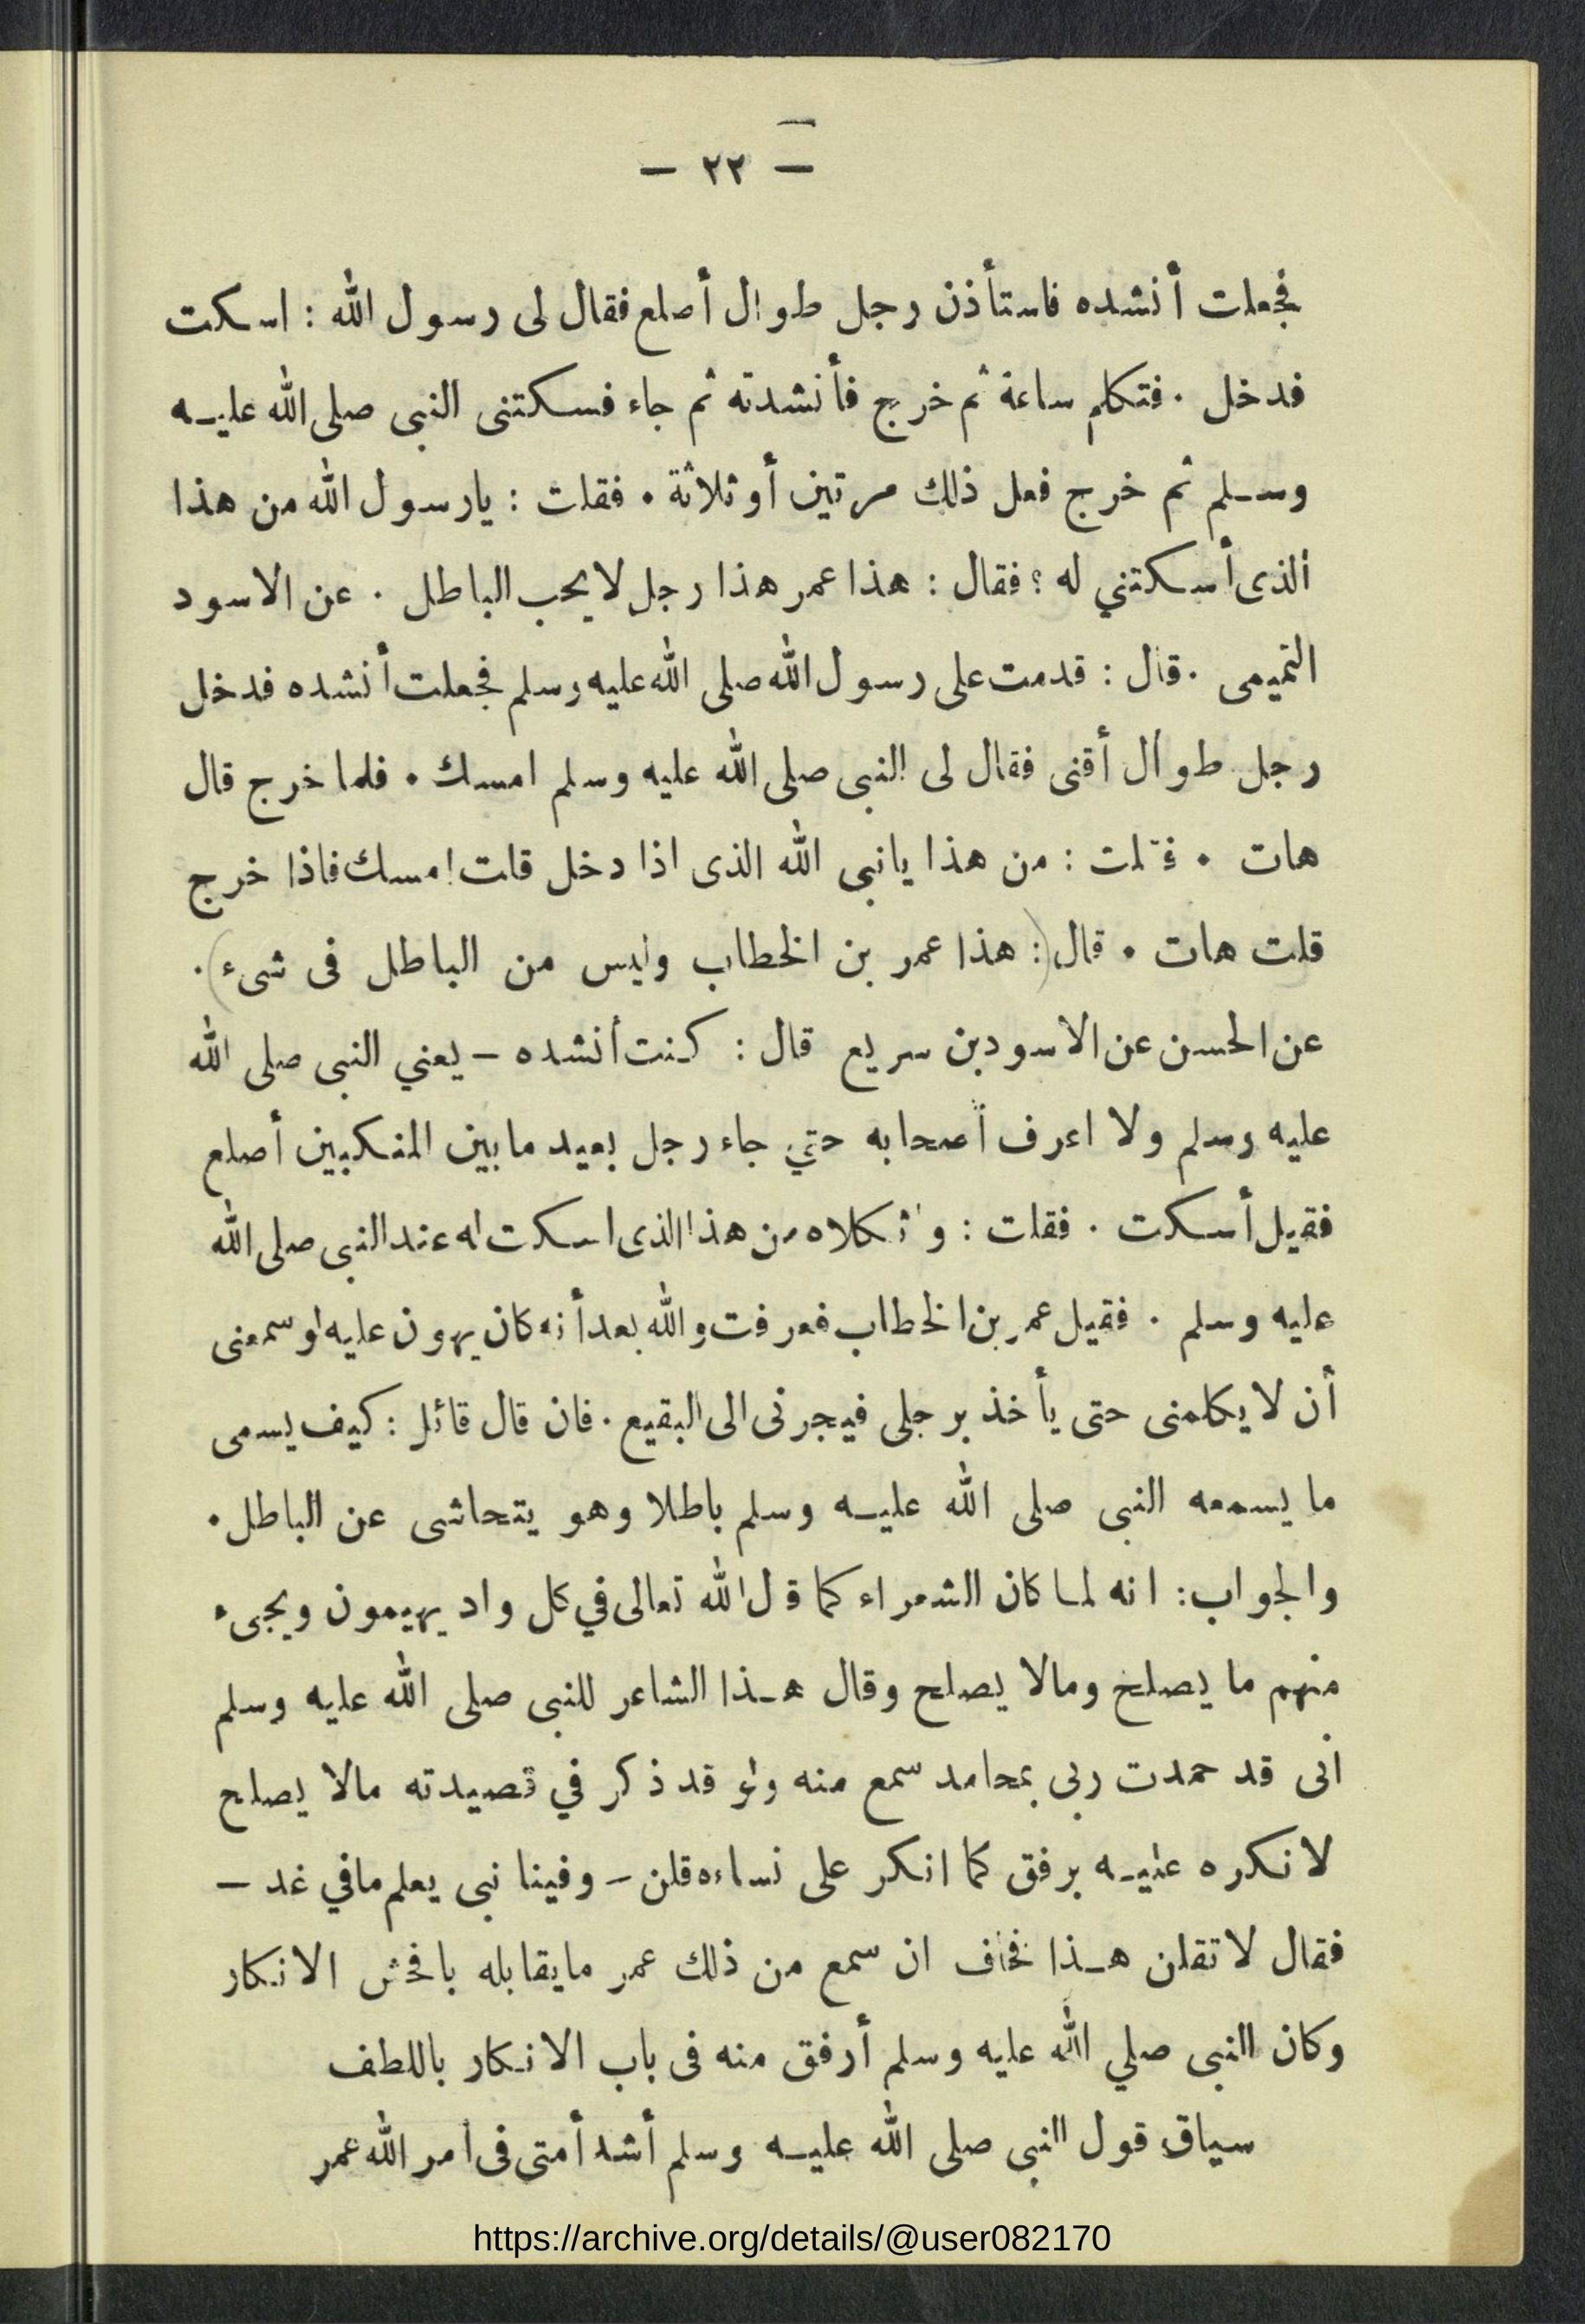 — ٢٢ —
فجعلت أنشده فاستأذن رجل طوال أصلع فقال لى رسول الله : اسكت
فدخل . فتكلم ساعة ثم خرج فأنشدته ثم جاء فسكتنى النبى صلى الله عليه
وسلم ثم خرج فعل ذلك مرتين أو ثلاثة . فقلت : يارسول الله من هذا
الذى أسكتني له ؟ فقال : هذا عمر هذا رجل لا يحب الباطل . عن الاسود
التميمى . قال : قدمت على رسول الله صلى الله عليه وسلم فجعلت أنشده فدخل
رجل طوال أقنى فقال لى النبى صلى الله عليه وسلم امسك . فلما خرج قال
هات . فقلت : من هذا يانبى الله الذى اذا دخل قلت امسك فاذا خرج
قلت هات . قال (: هذا عمر بن الخطاب وليس من الباطل فى شىء) .
عن الحسن عن الاسود بن سريع قال : كنت أنشده — يعني النبى صلى الله
عليه وسلم ولا اعرف أصحابه حتي جاء رجل بعيد ما بين المنكبين أصلع
فقيل أسكت . فقلت : واثكلاه من هذا الذى اسكت له عند النبى صلى الله
عليه وسلم . فقيل عمر بن الخطاب فعرفت والله بعد أنه كان يهون عليه لو سمعنى
أن لا يكلمنى حتى يأخذ برجلى فيجرنى الى البقيع . فان قال قائل : كيف يسمى
ما يسمعه النبى صلى الله عليه وسلم باطلا وهو يتحاشى عن الباطل .
والجواب : انه لما كان الشعراء كما قال الله تعالى في كل واد يهيمون ويجىء
منهم ما يصلح ومالا يصلح وقال هذا الشاعر للنبى صلى الله عليه وسلم
انى قد حمدت ربى بمحامد سمع منه ولو قد ذكر في قصيدته مالا يصلح
لانكره عليه برفق كما انكر على نساءه قلن — وفينا نبى يعلم مافي غد —
فقال لا تقلن هذا فخاف ان سمع من ذلك عمر مايقابله بافحش الانكار
وكان النبى صلي الله عليه وسلم أرفق منه فى باب الانكار باللطف
سياق قول النبى صلى الله عليه وسلم أشد أمتى فى امر الله عمر
https://archive.org/details/@user082170